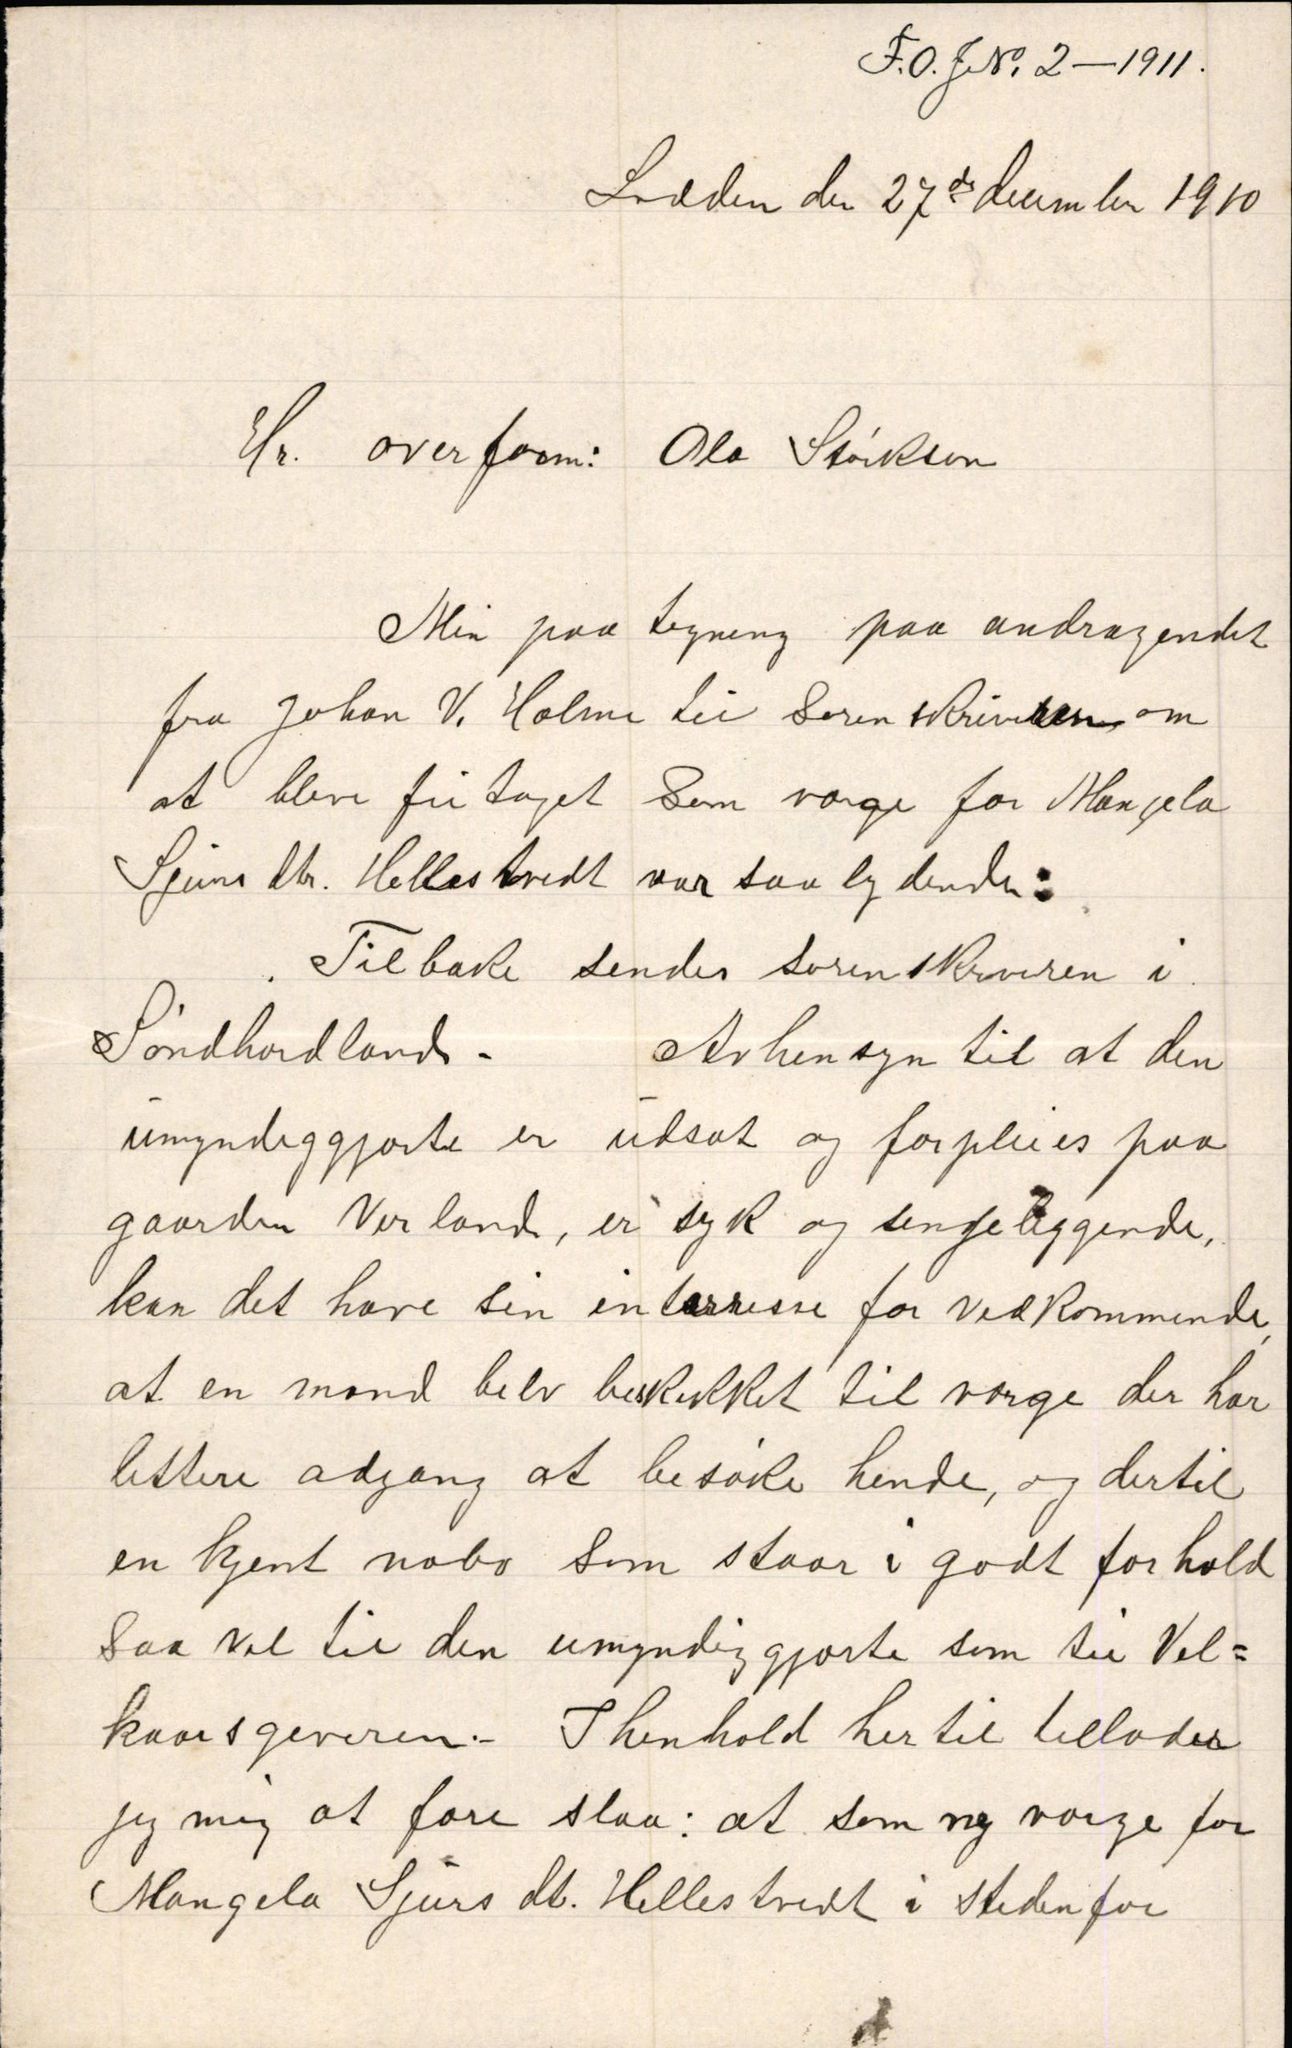 F.O.J.No. 2–1911.
Lædden den 27de december 1910
Hr. overform: Ola Störkson
Min paa tegning paa andragendet
fra Johan V. Holme til Sorenskriveren om
at bleve fri taget Som værge for Mangela
Sjurs dtr. Hellestvedt var saa lydende:
Tilbake sendes sorenskriveren i
Söndhordland.- Av hensyn til at den
umyndiggjorte er udsat og forpleies paa
gaarden Vorland, er syk og sengeliggende,
kan det have sin interresse for vedkommende,
at en mand belv beskikket til værge der har
lettere adgang at besöke hende, og dertil
en kjent nabo Som staar i godt forhold
Saa vel til den umyndiggjorte som til Vel=
kaarsgeveren.- I henhold hertil tillader
jeg mig at fore slaa: at som ny værge for
Mangela Sjurs dt. Hellestvedt i stedenfor